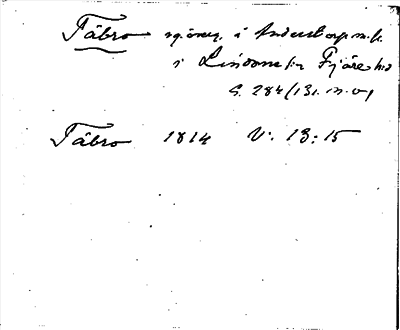 Tåbro sjöäng i Anderstorp m.fl.
i Lindome sn Fjäre hd
S. 284 (131. m. v)
Tåbro 1814 V: 13:15